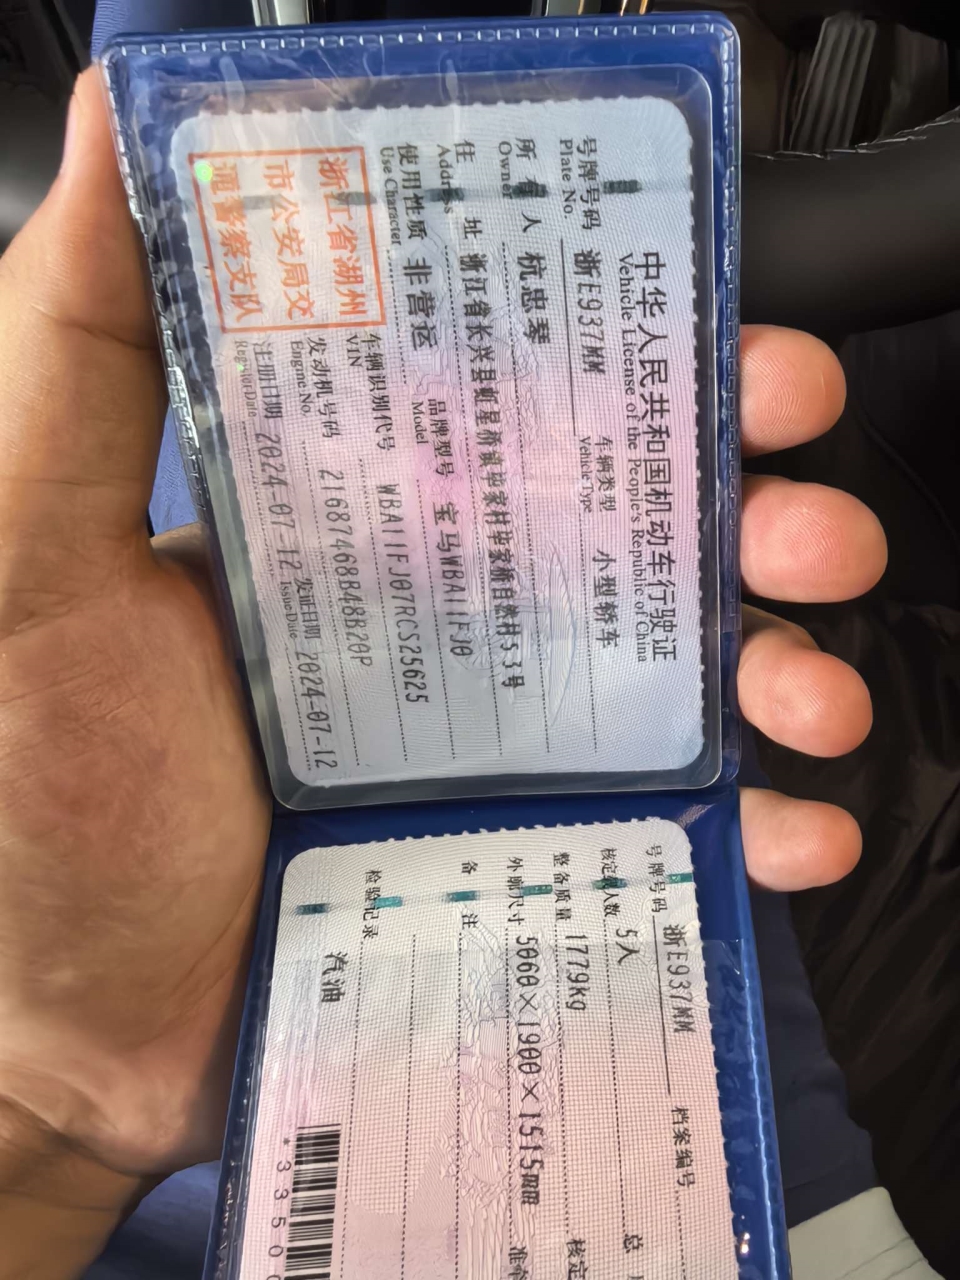 中华人民共和国机动车行驶证
Vehicle License of the People's Republic of China
号牌号码 浙E937MM 车辆类型 小型轿车
Plate No. Vehicle Type
所有人 杭忠琴
Owner
住址 浙江省长兴县虹星桥镇毕家村毕家桥自然村53号
Address
使用性质 非营运 品牌型号 宝马WBA11FJ0
Use Character Model
浙江省湖州
市公安局交
通警察支队
车辆识别代号 WBA11FJ07RCS25625
VIN
发动机号码 21687468B48B20P
Engine No.
注册日期 2024-07-12 发证日期 2024-07-12
Register Date Issue Date
号牌号码 浙E937MM 档案编号
核定载人数 5人 总
整备质量 1779kg 核定
外廓尺寸 5060×1900×1515mm 准牵
备注
检验记录
汽油
*3350